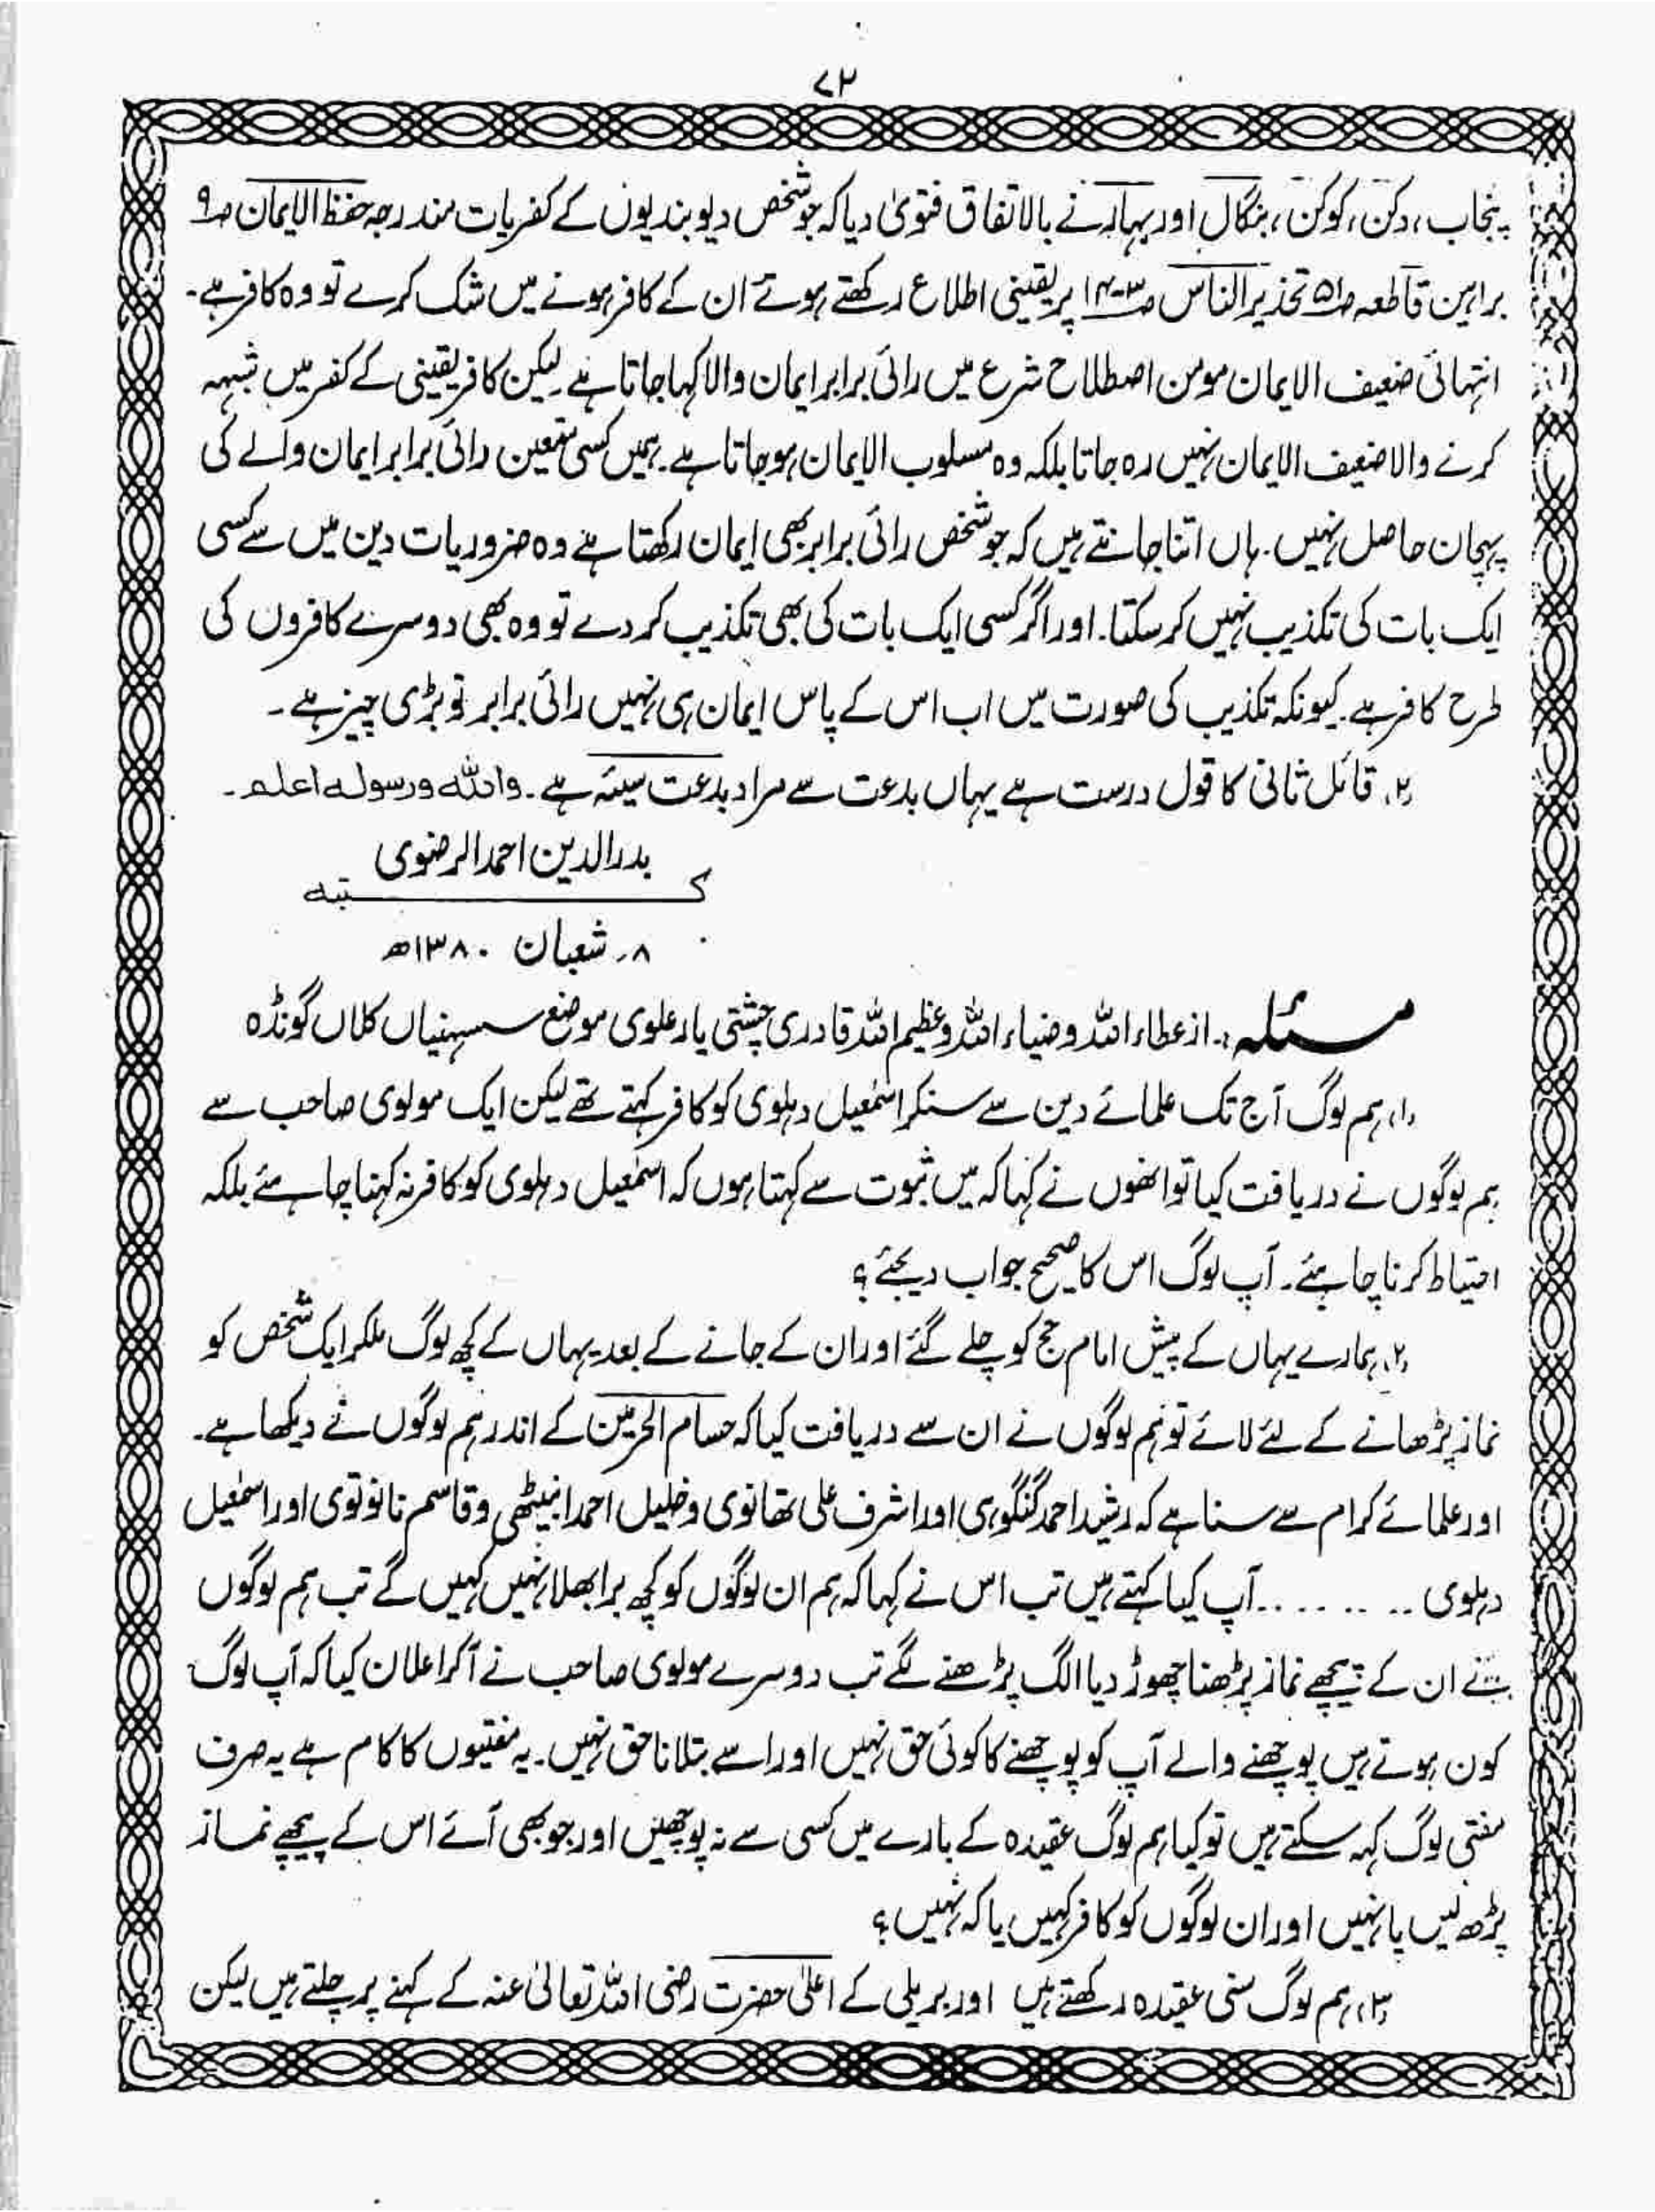 ۷۲
پنجاب، دکن، کوکن، بنگال اور بہار نے بالاتفاق فتویٰ دیا کہ جو شخص دیوبندیوں کے کفریات مندرجہ حفظ الایمان ص۹
براہین قاطعہ ص۵۱ تحذیر الناس ص پر یقینی اطلاع رکھتے ہوئے ان کے کافر ہونے میں شک کرے تو وہ کافر ہے۔
انتہائی ضعیف الایمان مومن اصطلاح شرع میں رائی برابر ایمان والا کہا جاتا ہے لیکن کافر یقینی کے کفر میں شبہہ
کرنے والا ضعیف الایمان نہیں رہ جاتا بلکہ وہ مسلوب الایمان ہو جاتا ہے۔ ہمیں کسی متعین رائی برابر ایمان والے کی
پہچان حاصل نہیں۔ ہاں اتنا جانتے ہیں کہ جو شخص رائی برابر بھی ایمان رکھتا ہے وہ ضروریات دین میں سے کسی
ایک بات کی تکذیب نہیں کر سکتا۔ اور اگر کسی ایک بات کی بھی تکذیب کر دے تو وہ بھی دوسرے کافروں کی
طرح کافر ہے۔ کیونکہ تکذیب کی صورت میں اب اس کے پاس ایمان ہی نہیں رائی برابر تو بڑی چیز ہے۔
(۲) قائل ثانی کا قول درست ہے یہاں بدعت سے مراد بدعت سیئہ ہے۔ واللہ ورسولہ اعلم۔
بدرالدین احمد الرضوی
کتبہ
۸؍ شعبان ۱۳۸۰ھ
مسئلہ:۔ از عطاء اللہ و ضیاء اللہ و عظیم اللہ قادری چشتی یار علوی موضع سسہنیاں کلاں گونڈہ
(۱) ہم لوگ آج تک علمائے دین سے سنکر اسمٰعیل دہلوی کو کافر کہتے تھے لیکن ایک مولوی صاحب سے
ہم لوگوں نے دریافت کیا تو انھوں نے کہا کہ میں ثبوت سے کہتا ہوں کہ اسمٰعیل دہلوی کو کافر نہ کہنا چاہئے بلکہ
احتیاط کرنا چاہئے۔ آپ لوگ اس کا صحیح جواب دیجئے؟
(۲) ہمارے یہاں کے پیش امام حج کو چلے گئے اور ان کے جانے کے بعد یہاں کے کچھ لوگ ملکر ایک شخص کو
نماز پڑھانے کے لئے لائے تو ہم لوگوں نے ان سے دریافت کیا کہ حسام الحرمین کے اندر ہم لوگوں نے دیکھا ہے۔
اور علمائے کرام سے سنا ہے کہ رشید احمد گنگوہی اور اشرف علی تھانوی و خلیل احمد انبیٹھی و قاسم نانوتوی اور اسمٰعیل
دہلوی ........ آپ کیا کہتے ہیں تب اس نے کہا کہ ہم ان لوگوں کو کچھ برا بھلا نہیں کہیں گے تب ہم لوگوں
نے ان کے پیچھے نماز پڑھنا چھوڑ دیا الگ پڑھنے لگے تب دوسرے مولوی صاحب نے آکر اعلان کیا کہ آپ لوگ
کون ہوتے ہیں پوچھنے والے آپ کو پوچھنے کا کوئی حق نہیں اور اسے بتلانا حق نہیں۔ یہ مفتیوں کا کام ہے یہ صرف
مفتی لوگ کہہ سکتے ہیں تو کیا ہم لوگ عقیدہ کے بارے میں کسی سے نہ پوچھیں اور جو بھی آئے اس کے پیچھے نماز
پڑھ لیں یا نہیں اور ان لوگوں کو کافر کہیں یا کہ نہیں؟
(۳) ہم لوگ سنی عقیدہ رکھتے ہیں اور بریلی کے اعلیٰ حضرت رضی اللہ تعالیٰ عنہ کے کہنے پر چلتے ہیں لیکن